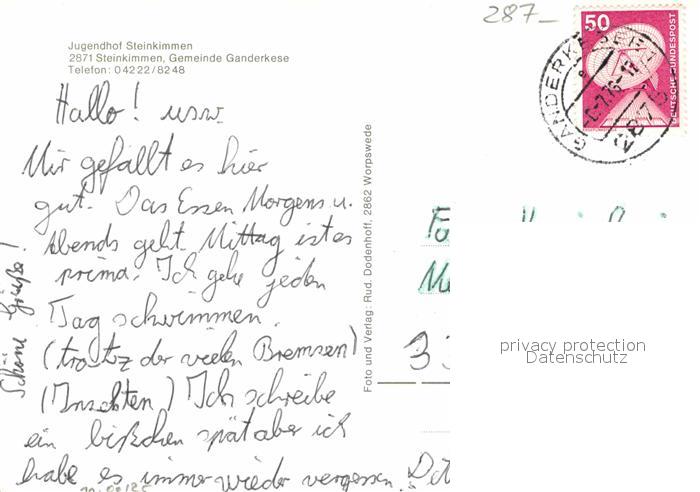 287_
50
DEUTSCHE BUNDESPOST
Jugendhof Steinkimmen
2871 Steinkimmen, Gemeinde Ganderkese
Telefon: 0 42 22 / 82 48
Hallo! usw.
Mir gefällt es hier
gut. Das Essen Morgens u.
Abends geht. Mittag ist es
prima. Ich gehe jeden
Tag schwimmen.
(trotz der vielen Bremsen)
(Insekten) Ich schreibe
ein bißchen spät aber ich
habe es immer wieder vergessen.
Schöne Grüße!
Foto und Verlag: Rud. Dodenhoff, 2862 Worpswede
privacy protection
Datenschutz